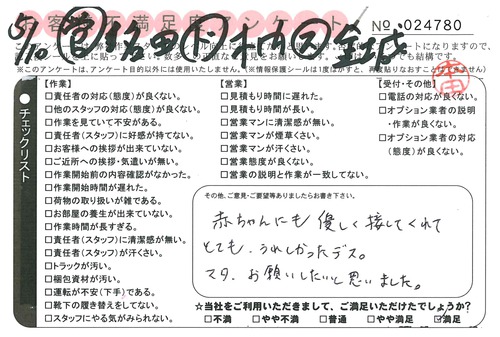 お客様不満足度アンケート
No 024780
5/10
(※このアンケートは、アンケート目的以外には使用いたしません。)(※情報保護シールは1度はがすと、再度貼りなおすことができません)
チェックリスト
【作業】
□責任者の対応(態度)が良くない。
□他のスタッフの対応(態度)が良くない。
□作業を見ていて不安がある。
□責任者(スタッフ)に好感が持てない。
□お客様への挨拶が出来ていない。
□ご近所への挨拶・気遣いが無い。
□作業開始前の内容確認がなかった。
□作業開始時間が遅れた。
□荷物の取り扱いが雑である。
□お部屋の養生が出来ていない。
□作業時間が長すぎる。
□責任者(スタッフ)に清潔感が無い。
□責任者(スタッフ)が汗くさい。
□トラックが汚い。
□梱包資材が汚い。
□運転が不安(下手)である。
□靴下の履き替えをしてない。
□スタッフにやる気がみられない。
【営業】
□見積もり時間に遅れた。
□見積もり時間が長い。
□営業マンに清潔感が無い。
□営業マンが煙草くさい。
□営業マンが汗くさい。
□営業態度が良くない。
□営業の説明と作業が一致してない。
【受付・その他】
□電話の対応が良くない。
□オプション業者の説明
・作業が良くない。
□オプション業者の対応
(態度)が良くない。
その他、ご意見・ご要望等ありましたらお書き下さい。
赤ちゃんにも優しく接してくれて
とても、うれしかったデス。
マタ、お願いしたいと思いました。
☆当社をご利用いただきまして、ご満足いただけたでしょうか?
□不満 □やや不満 □普通 □やや満足 ☑満足